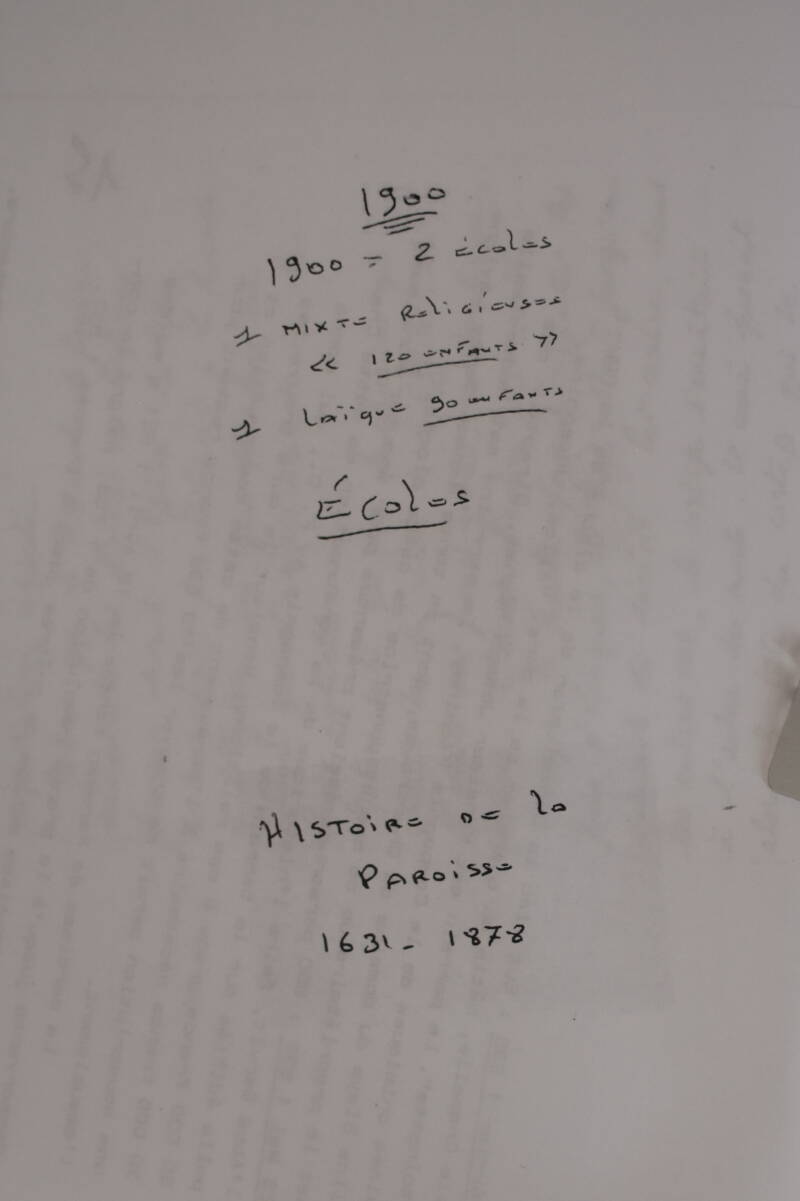 1900
1900 = 2 Écoles
1 MIXTE Religieuses
<< 120 enFANTS >>
1 Laïque 90 enFants
Écoles
HISTOIRE DE la
PAROISSE
1631 - 1878